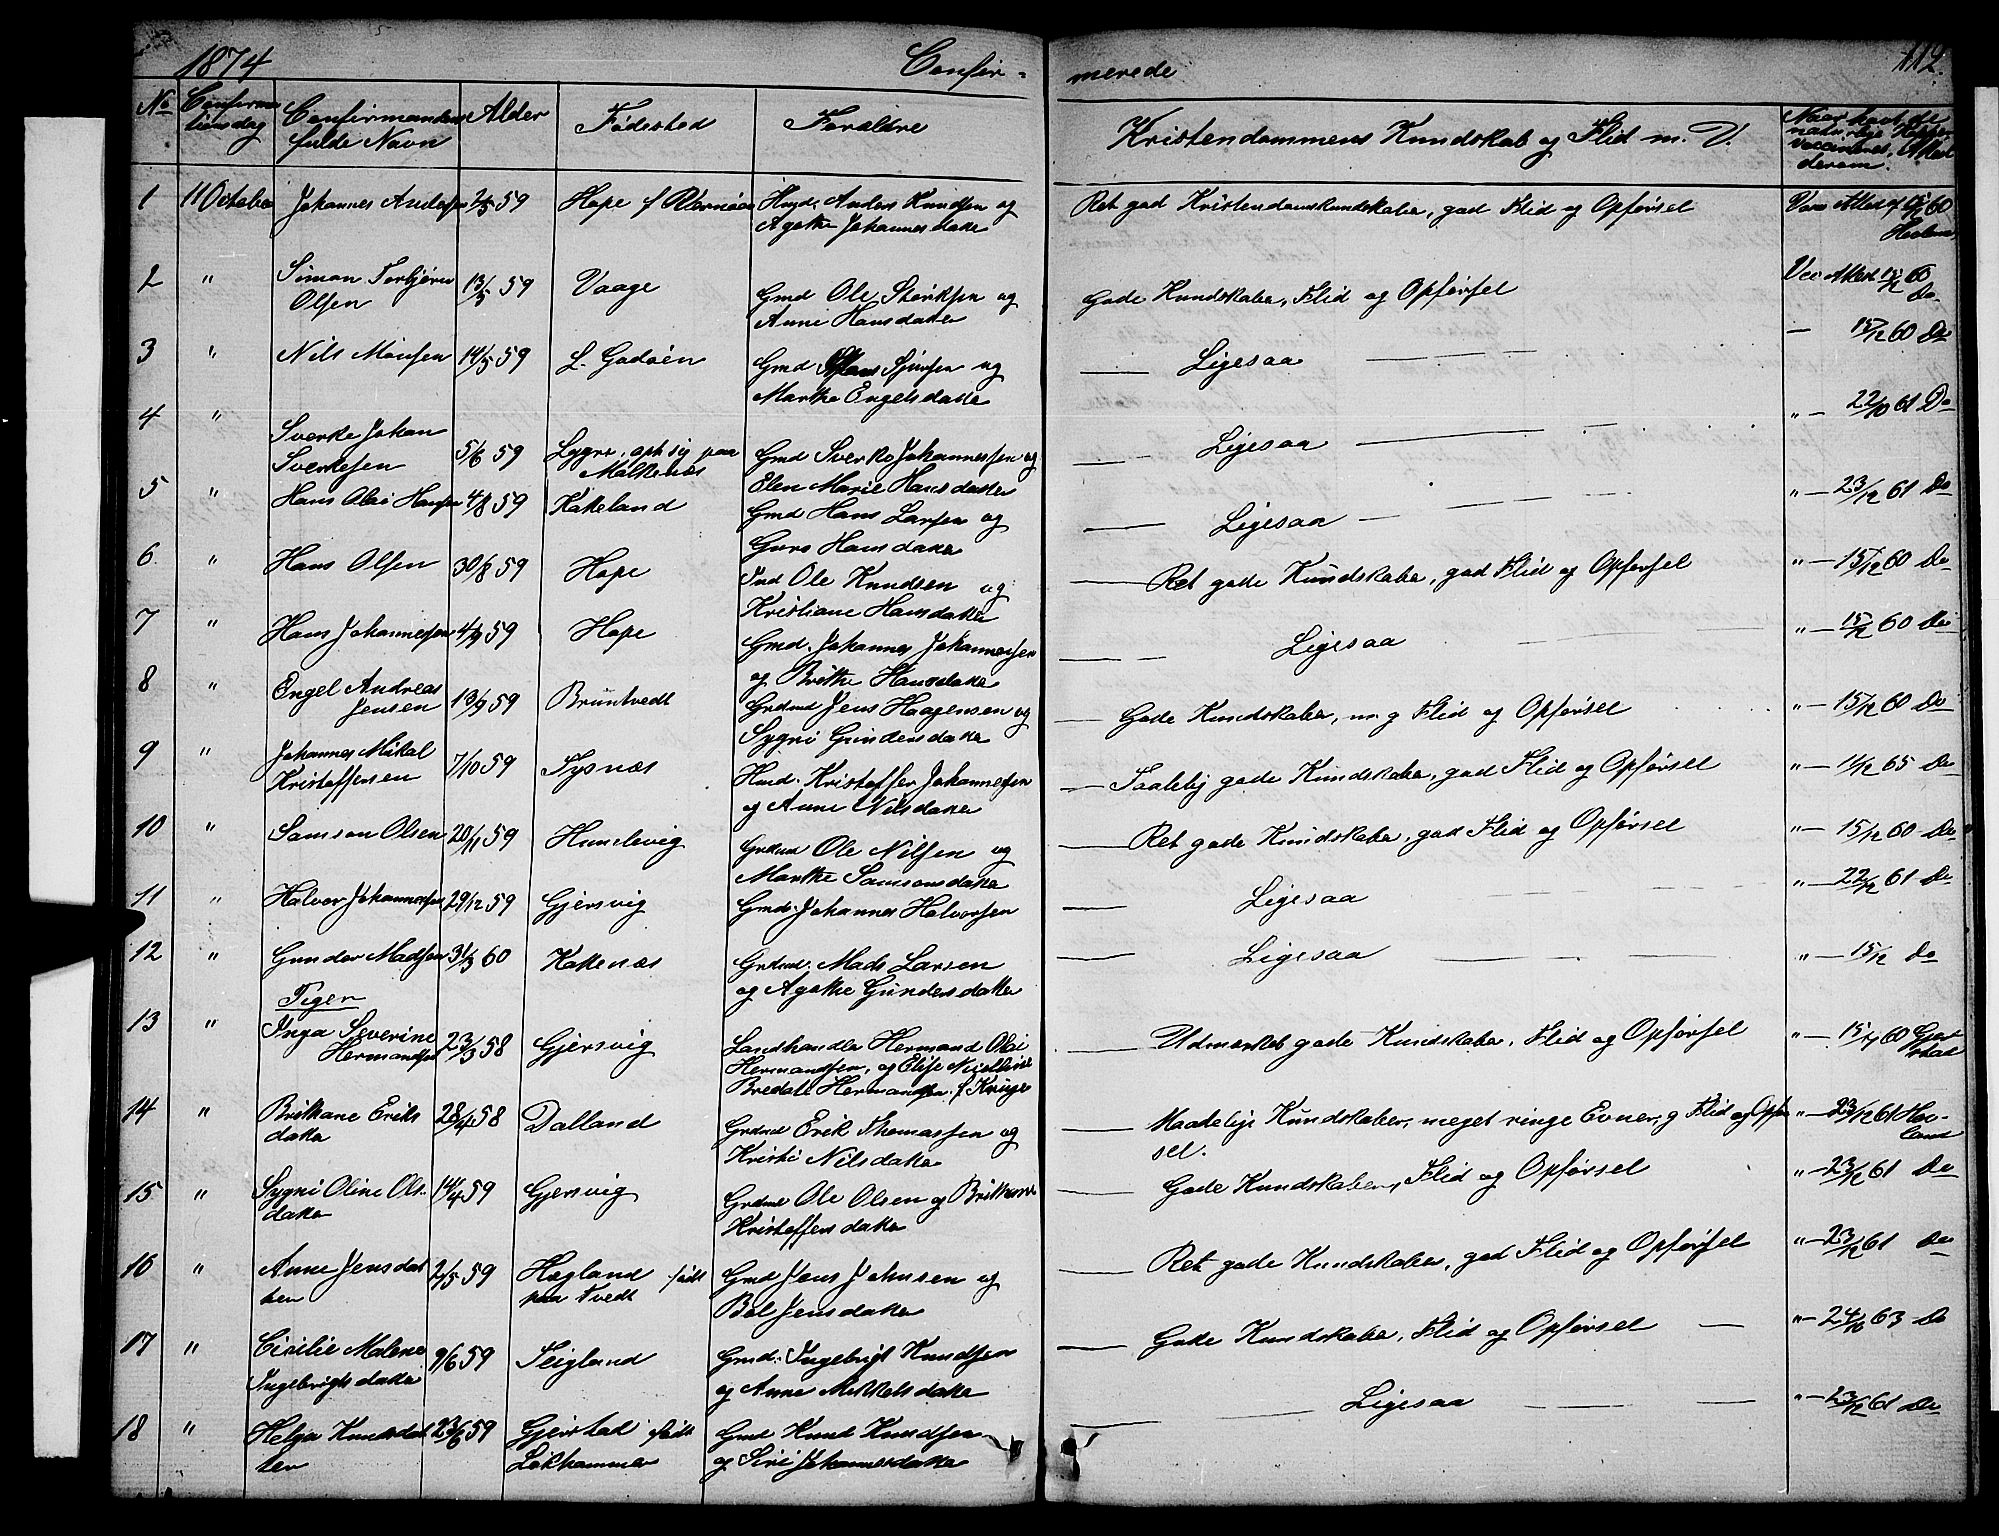 1874 Confir-
merede 112.
No Confirmationsdag Confirmandens fulde Navn Alder Fødested Forældre Kristendommens Kundskab og Flid m. V. Naar havt de naturlige Kopper, vaccineret, Attest derom.
1 11 October Johannes Andersen 2/5 59 Hope f Hmd. Anders Knudsen og Ret god Kristendomskundskaber, god Flid og Opførsel Vac Attest 15/12 60
Agathe Johannesdatter
2 " Simon Torbjørn 13/5 59 Vaage Gmd Ole Størksen og Gode Kundskaber, Flid og Opførsel Vac Attest 15/12 60 Do
Olsen Anne Hansdatter
3 " Nils Monsen 14/5 59 L. Godøen Gmd Mons Sjursen og Ligesaa — 15/12 60 Do
Marthe Engelsdatter
4 " Sverke Johan 5/6 59 Lygre, oph sig paa Gmd Sverke Johannessen og Ligesaa " — 22/10 61 Do
Sverkesen Malkenæs Elen Marie Hansdatter
5 " Hans Olai Hansen 4/8 59 Kakeland Gmd Hans Larsen og Ligesaa " — 23/12 61 Do
Guro Hansdatter
6. " Hans Olsen 30/8 59 Hope Ind Ole Knudsen og Ret gode Kundskaber, god Flid og Opførsel " — 15/12 60 Do
Kristiane Hansdatter
7 " Hans Johannessen 4/9 59 Hope Gmd. Johannes Johannessen Ligesaa " — 15/12 60 Do
og Brithe Hansdatter
8 " Engel Andreas 13/9 59 Bruntvedt Grdmd Jens Haagensen og Gode Kundskaber, m. g Flid og Opførsel " — 15/12 60 Do
Jensen Sygni Gundersdatter
9 " Johannes Mikal 7/10 59 Tysnæs Hmd. Kristoffer Johannessen Taalelig gode Kundskaber, god Flid og Opførsel " — 11/12 65 Do
Kristoffersen og Anne Nilsdatter
10 " Samson Olsen 20/11 59 Hunelevig Grdmd Ole Nilsen og Ret gode Kundskaber, god Flid og Opførsel " — 15/12 60 Do
Marthe Samsonsdatter
11 " Halvor Johannessen 29/12 59 Gjersvig Gmd. Johannes Halvorsen Ligesaa " — 22/12 61 Do
12 " Gunder Madsen 31/3 60 Kakenæs Grdmd. Mads Larsen Ligesaa " — 15/12 Do
og Agathe Gundersdatter
Piger
13 " Inga Severine 23/3 58 Gjersvig Landhandler Hermand Olai Udmærket gode Kundskaber, Flid og Opførsel " — 60 Gjerstad
Hermandsen Hermandsen, og Elise Nicoline
Bredal Hermandsen f. Krüger
14 " Brithane Eriks 28/4 58 Dalland Grdmd Erik Thomassen og Maadelige Kundskaber, meget ringe Evner, g Flid og Opfør " — 23/12 61 Hovland
datter Kristi Nilsdatter sel.
15 " Sygni Oline Ols. 14/4 59 Gjersvig Grdmd Ole Olsen og Brithane Gode Kundskaber, Flid og Opførsel " — 23/12 61 Do
datter Kristoffersdatter
16 " Anne Jensdat 2/5 59 Hægland født Gmd Jens Johnsen og Ret gode Kundskaber, god Flid og Opførsel " — 23/12 61 Do
ter paa Tvedt Bol Jensdatter
17 " Cisilie Malene 9/6 59 Seigland Gmd. Ingebrigt Knudsen Gode Kundskaber, Flid og Opførsel " — 24/10 63 Do
Ingebrigtsdatter og Anne Mikkelsdatter
18 " Helga Knudsdat 23/6 59 Gjerstad født Gmd Knud Knudsen Ligesaa " — 23/12 61 Do
ter Løkhammer og Siri Johannesdatter